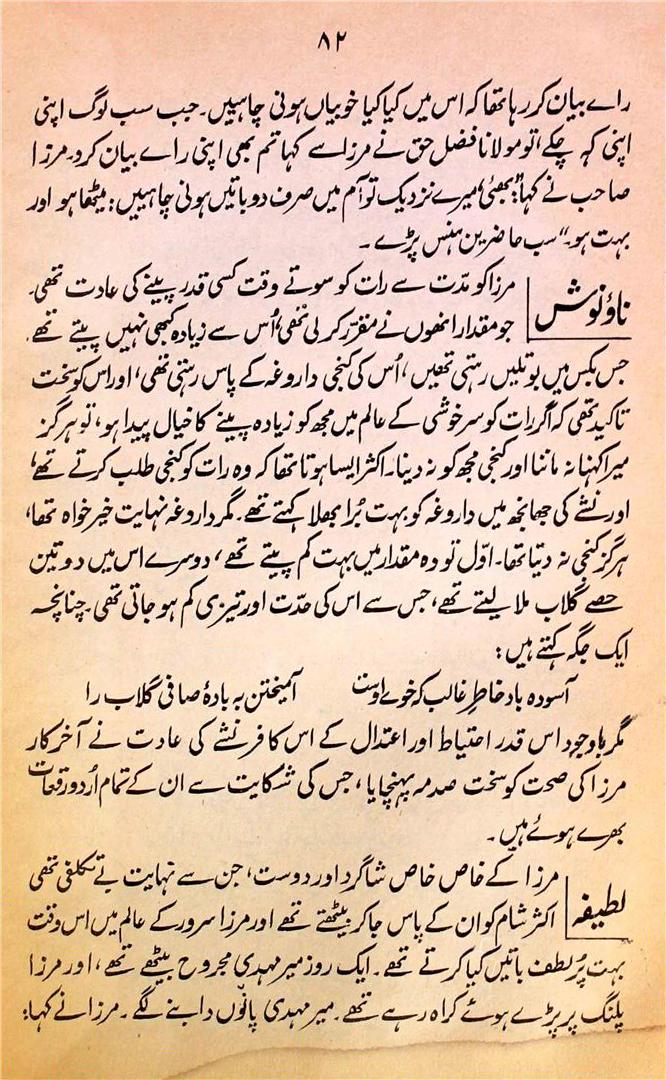 ۸۲
راے بیان کر رہا تھا کہ اس میں کیا کیا خوبیاں ہونی چاہییں۔ جب سب لوگ اپنی
اپنی کہہ چکے، تو مولانا فضل حق نے مرزا سے کہا تم بھی اپنی راے بیان کرو۔ مرزا
صاحب نے کہا: "بھئی، میرے نزدیک تو آم میں صرف دو باتیں ہونی چاہییں: میٹھا ہو اور
بہت ہو۔" سب حاضرین ہنس پڑے۔
ناؤ نوش
مرزا کو مدّت سے رات کو سوتے وقت کسی قدر پینے کی عادت تھی۔
جو مقدار انھوں نے مقرّر کر لی تھی، اُس سے زیادہ کبھی نہیں پیتے تھے۔
جس بکس میں بوتلیں رہتی تھیں، اُس کی کنجی داروغہ کے پاس رہتی تھی، اور اس کو سخت
تاکید تھی کہ اگر رات کو سرخوشی کے عالم میں مجھ کو زیادہ پینے کا خیال پیدا ہو، تو ہرگز
میرا کہنا نہ ماننا اور کنجی مجھ کو نہ دینا۔ اکثر ایسا ہوتا تھا کہ وہ رات کو کنجی طلب کرتے تھے،
اور نشے کی جھانجھ میں داروغہ کو بہت بُرا بھلا کہتے تھے۔ مگر داروغہ نہایت خیر خواہ تھا،
ہرگز کنجی نہ دیتا تھا۔ اوّل تو وہ مقدار میں بہت کم پیتے تھے، دوسرے اس میں دو تین
حصے گلاب ملا لیتے تھے، جس سے اس کی حدّت اور تیزی کم ہو جاتی تھی۔ چنانچہ
ایک جگہ کہتے ہیں:
آسودہ باد خاطرِ غالب کہ خوے اوست آمیختن بہ بادۂ صافی گلاب را
مگر باوجود اس قدر احتیاط اور اعتدال کے اس کافر نشے کی عادت نے آخر کار
مرزا کی صحت کو سخت صدمہ پہنچایا، جس کی شکایت سے ان کے تمام اُردو رقعات
بھرے ہوئے ہیں۔
لطیفہ
مرزا کے خاص خاص شاگرد اور دوست، جن سے نہایت بے تکلفی تھی
اکثر شام کو ان کے پاس جا کر بیٹھتے تھے اور مرزا سرور کے عالم میں اس وقت
بہت پُر لطف باتیں کیا کرتے تھے۔ ایک روز میر مہدی مجروح بیٹھے تھے، اور مرزا
پلنگ پر پڑے ہوئے کراہ رہے تھے۔ میر مہدی پانوں دابنے لگے۔ مرزا نے کہا: